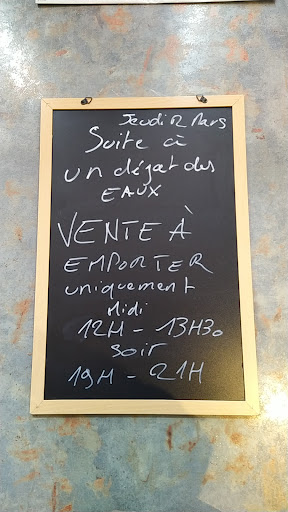 Jeudi 12 Mars
Suite à
un dégat des
EAUX
VENTE À
EMPORTER
uniquement
Midi
12H - 13H30
soir
19H - 21H